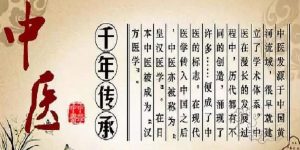 中医
千年传承
中医发源于中国黄
河流域，很早就建
立了学术体系。中
医在漫长的发展过
程中，历代都有不
同的创造，涌现了
许多……便成了中
医的标志，在现代
医学传入中国之后
，中医亦被称为“
皇汉医学”。在日
本中医被成为“汉
方医学”。